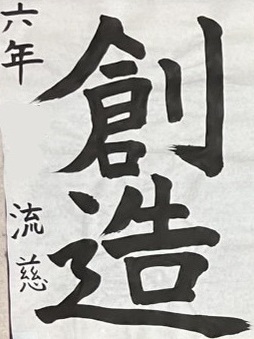 創造
六年
流慈